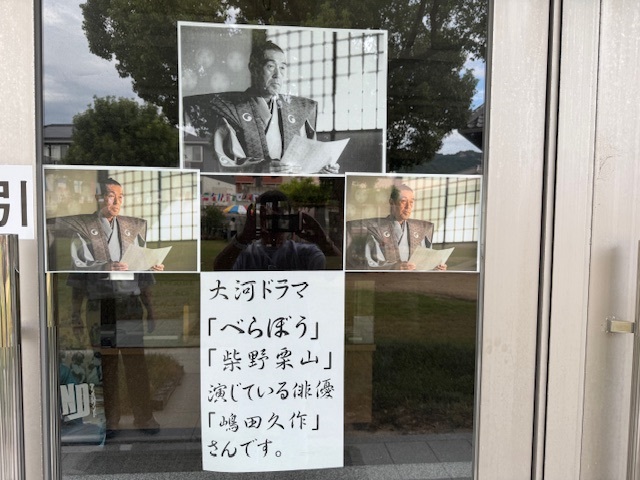 引
大河ドラマ
「べらぼう」
「柴野栗山」
演じている俳優
「嶋田久作」
さんです。